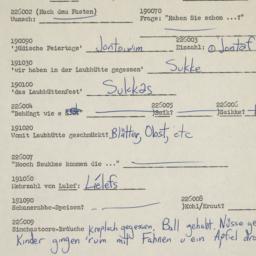 226002 (Nach dem Fasten)
Wunsch:
190070
Frage: "Haben Sie schon ...?"
190090
'jüdische Feiertage' Jontouvim
226003
Einzahl: Jontof
191030
'wir haben in der Laubhütte gegessen' Sukke
190100
'das Laubhüttenfest' Sukkas
226004
"Behängt wie e
226005
)Seik?
226006
)Saikke?
191020
Womit Laubhütte geschmückt? Blätter, Obst, etc
226007
"Nooch Szukkes kommen die ..."
191060
Mehrzahl von Lulef: Lielefs
191090
Schanorabbe-Speisen?
226008
)Kohl/Kraut?
226009
Simchastoore-Bräuche kreplach gegessen, Ball gehabt. Nüsse ge
Kinder gingen 'rum mit Fahnen u ein Apfel dra